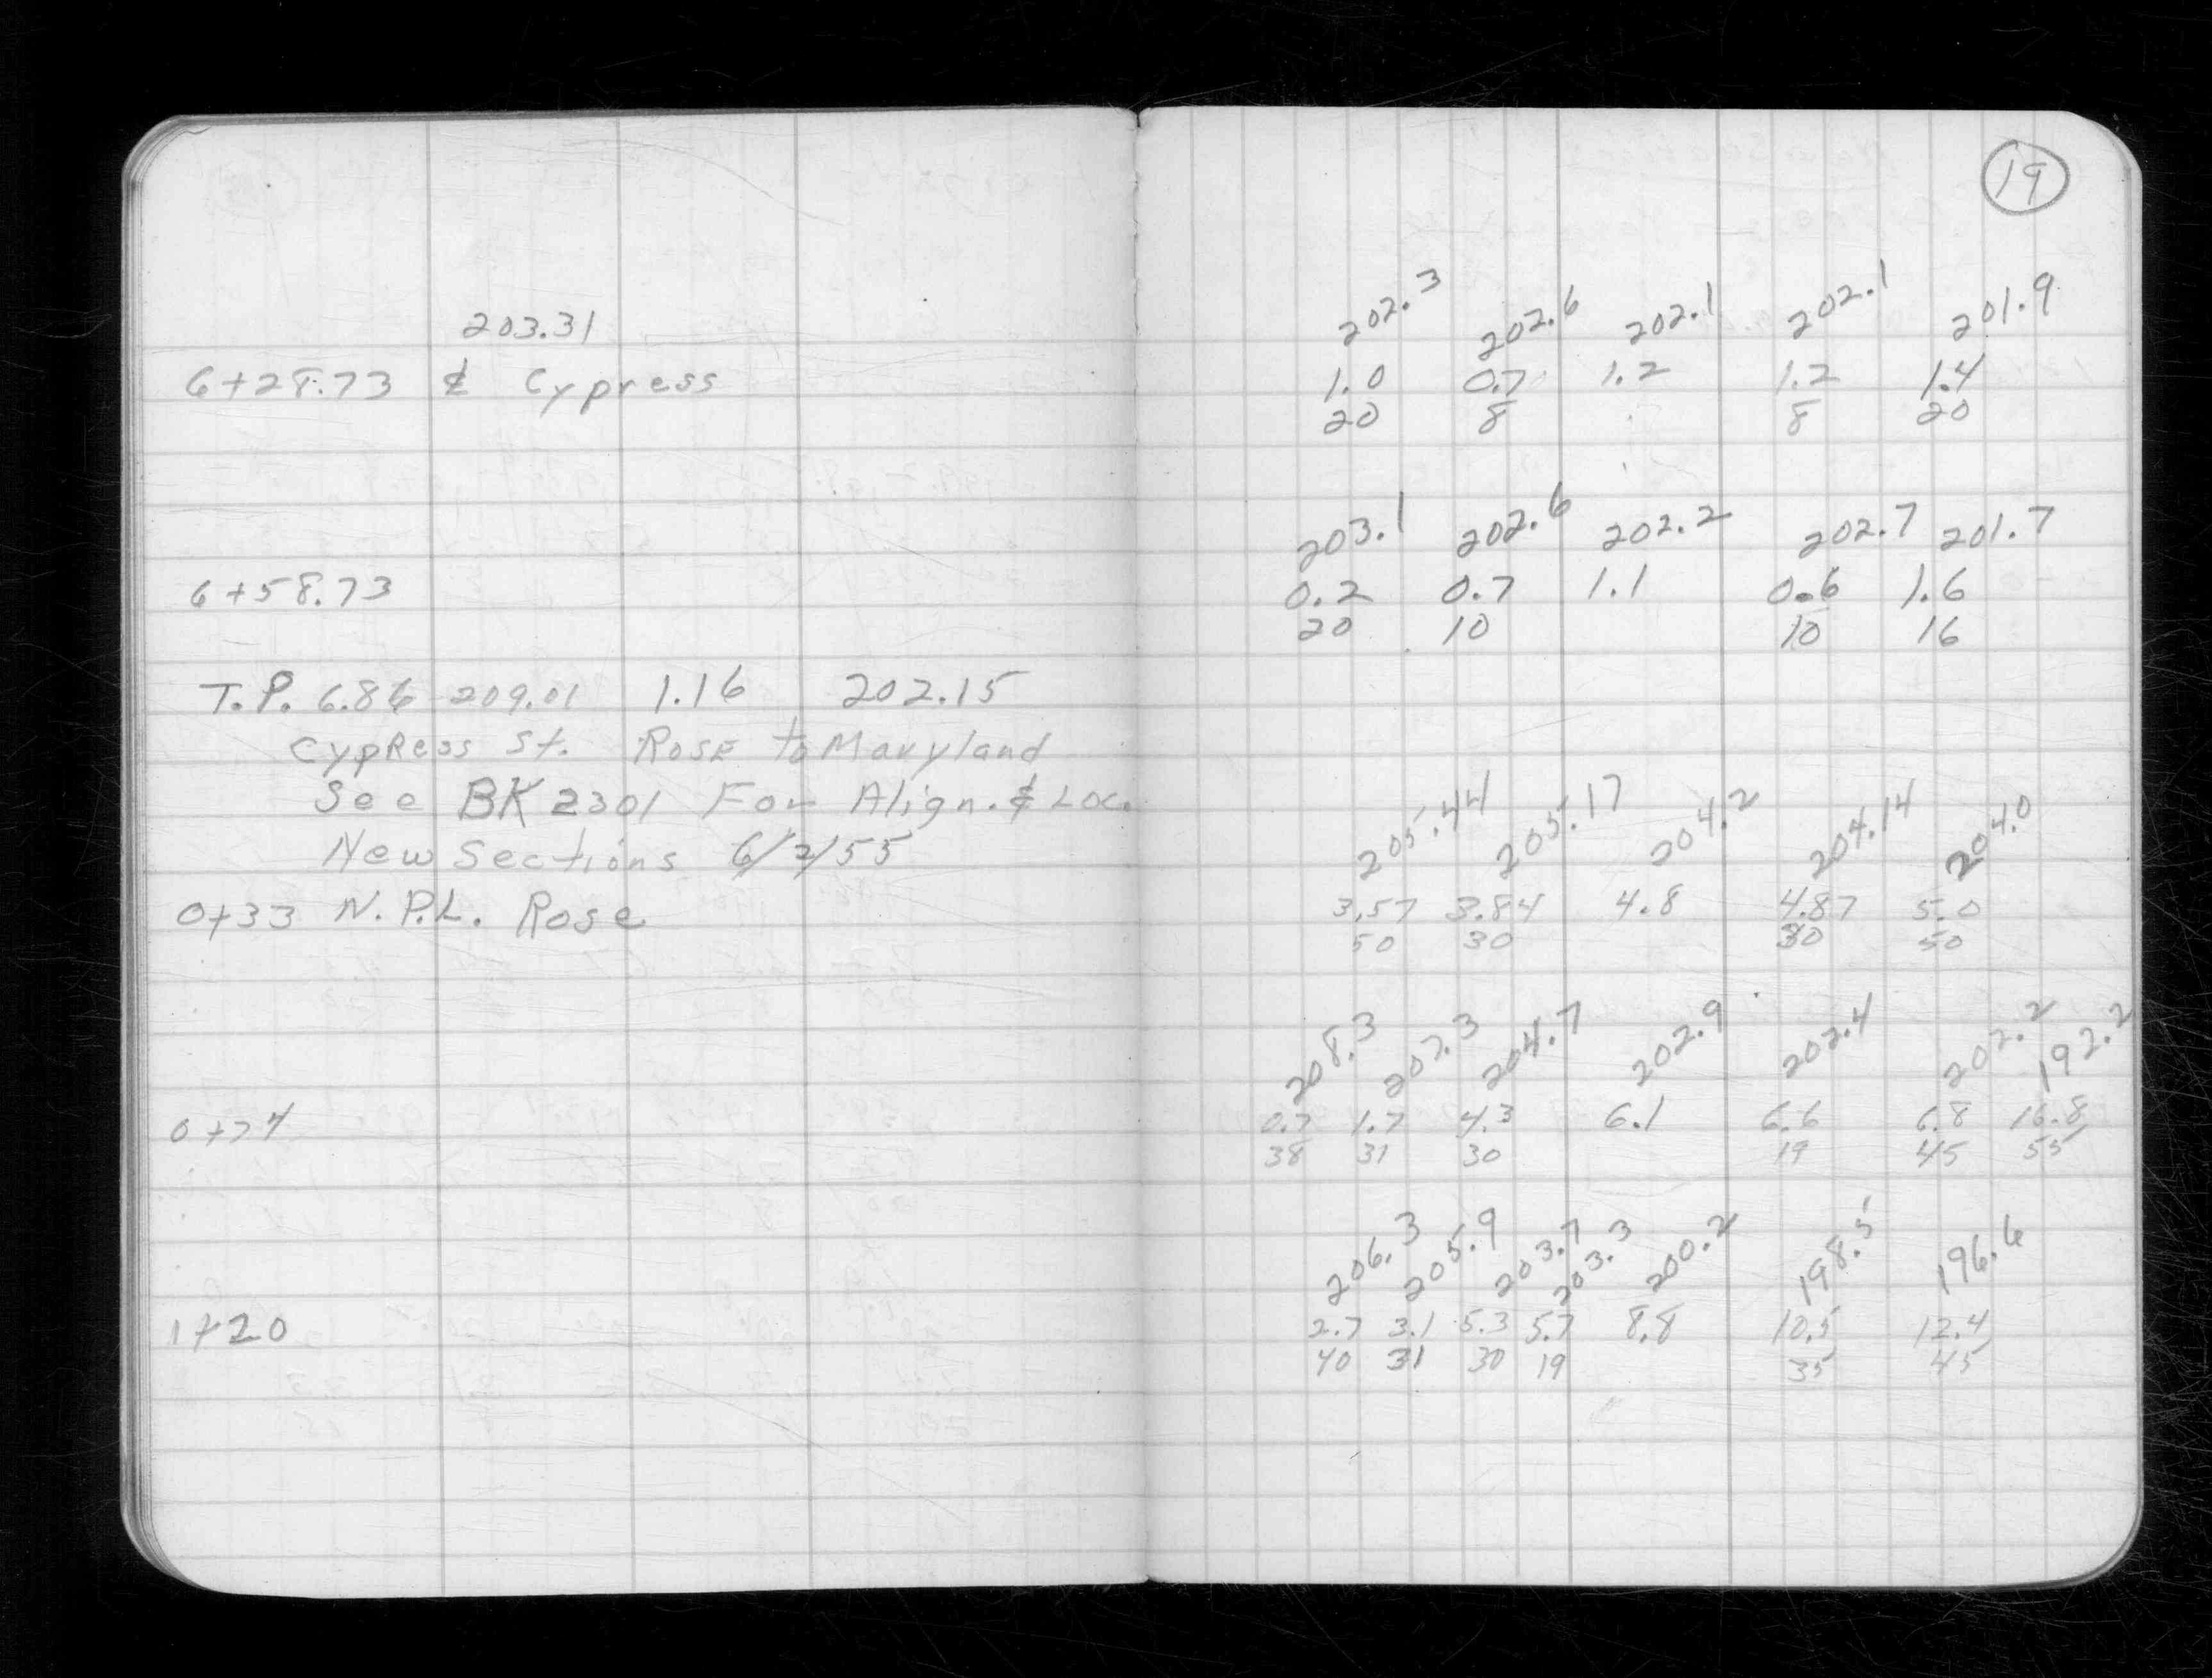 19
203.31
202.3 202.6 202.1 202.1 201.9
6+28.73 ℄ Cypress 1.0 0.7 1.2 1.2 1.4
20 8 8 20
203.1 202.6 202.2 202.7 201.7
6+58.73 0.2 0.7 1.1 0.6 1.6
20 10 10 16
T.P. 6.86 209.01 1.16 202.15
Cypress St. Rose to Maryland
See BK 2301 For Align. & Loc.
New Sections 6/2/55
205.44 205.17 204.2 204.14 204.0
0+33 N.P.L. Rose 3.57 3.84 4.8 4.87 5.0
50 30 30 50
208.3 207.3 204.7 202.9 202.4 202.2 192.2
0+74 0.7 1.7 4.3 6.1 6.6 6.8 16.8
38 31 30 19 45 55
206.3 205.9 203.7 203.3 200.2 198.5 196.6
1+20 2.7 3.1 5.3 5.7 8.8 10.5 12.4
40 31 30 19 35 45